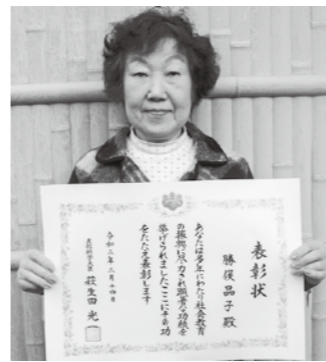 表彰状
勝俣品子殿
あなたは多年にわたり社会教育
の振興に尽力され顕著な功績を
挙げられましたここにその功
をたたえ表彰します
令和三年二月十四日
文部科学大臣 萩生田光一